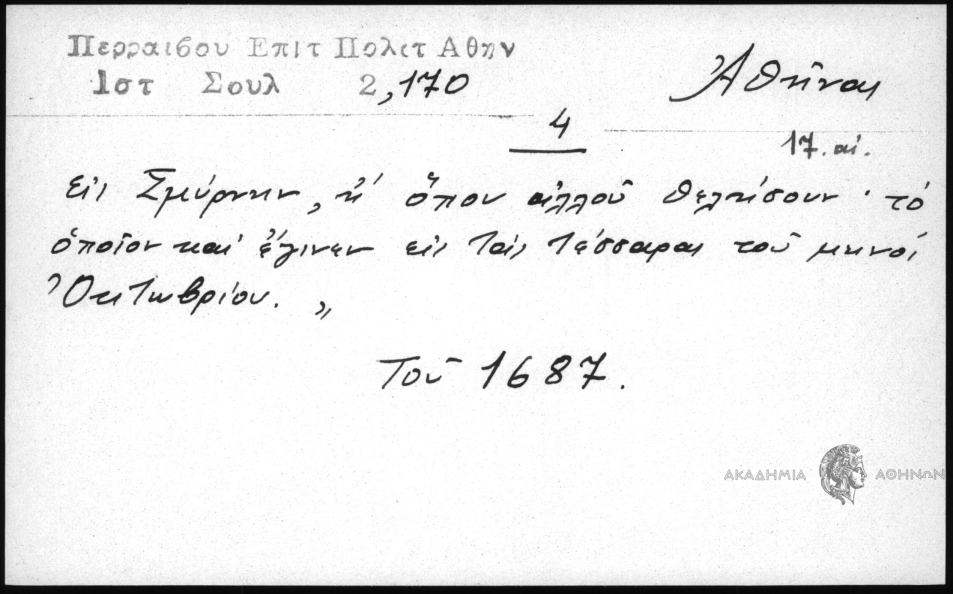 Περραιβου Επιτ Πολετ Αθην
Ιστ Σουλ 2,170
Ἀθῆναι
4
17. αἰ.
εἰς Σμύρνην, ἤ ὅπου ἀλλοῦ θελήσουν· τὸ
ὁποῖον καὶ ἔγινεν εἰς τάς τέσσαρας τοῦ μηνός
Ὀκτωβρίου. „
Τοῦ 1687.
ΑΚΑΔΗΜΙΑ ΑΘΗΝΩΝ